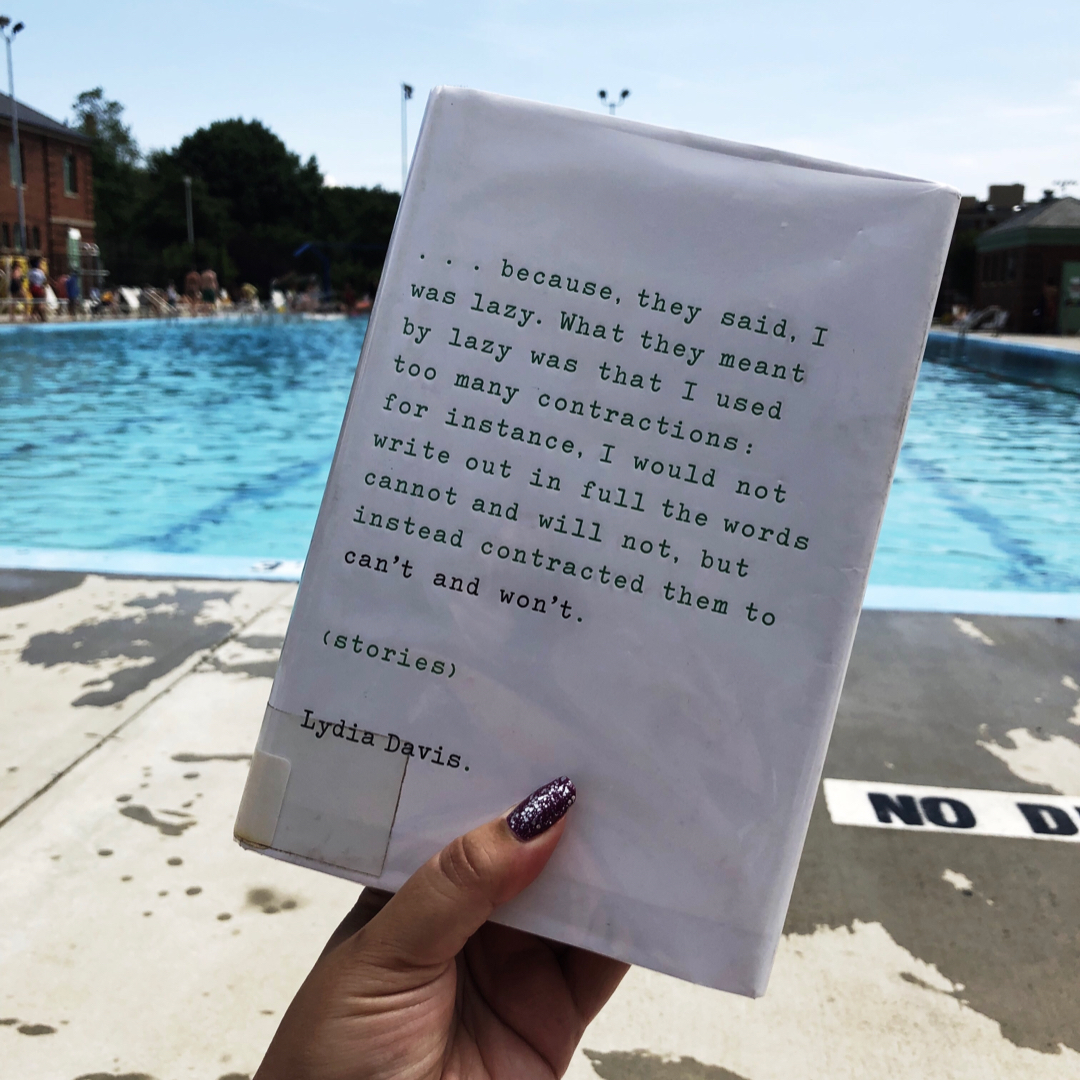 . . . because, they said, I
was lazy. What they meant
by lazy was that I used
too many contractions:
for instance, I would not
write out in full the words
cannot and will not, but
instead contracted them to
can't and won't.
(stories)
Lydia Davis.
NO